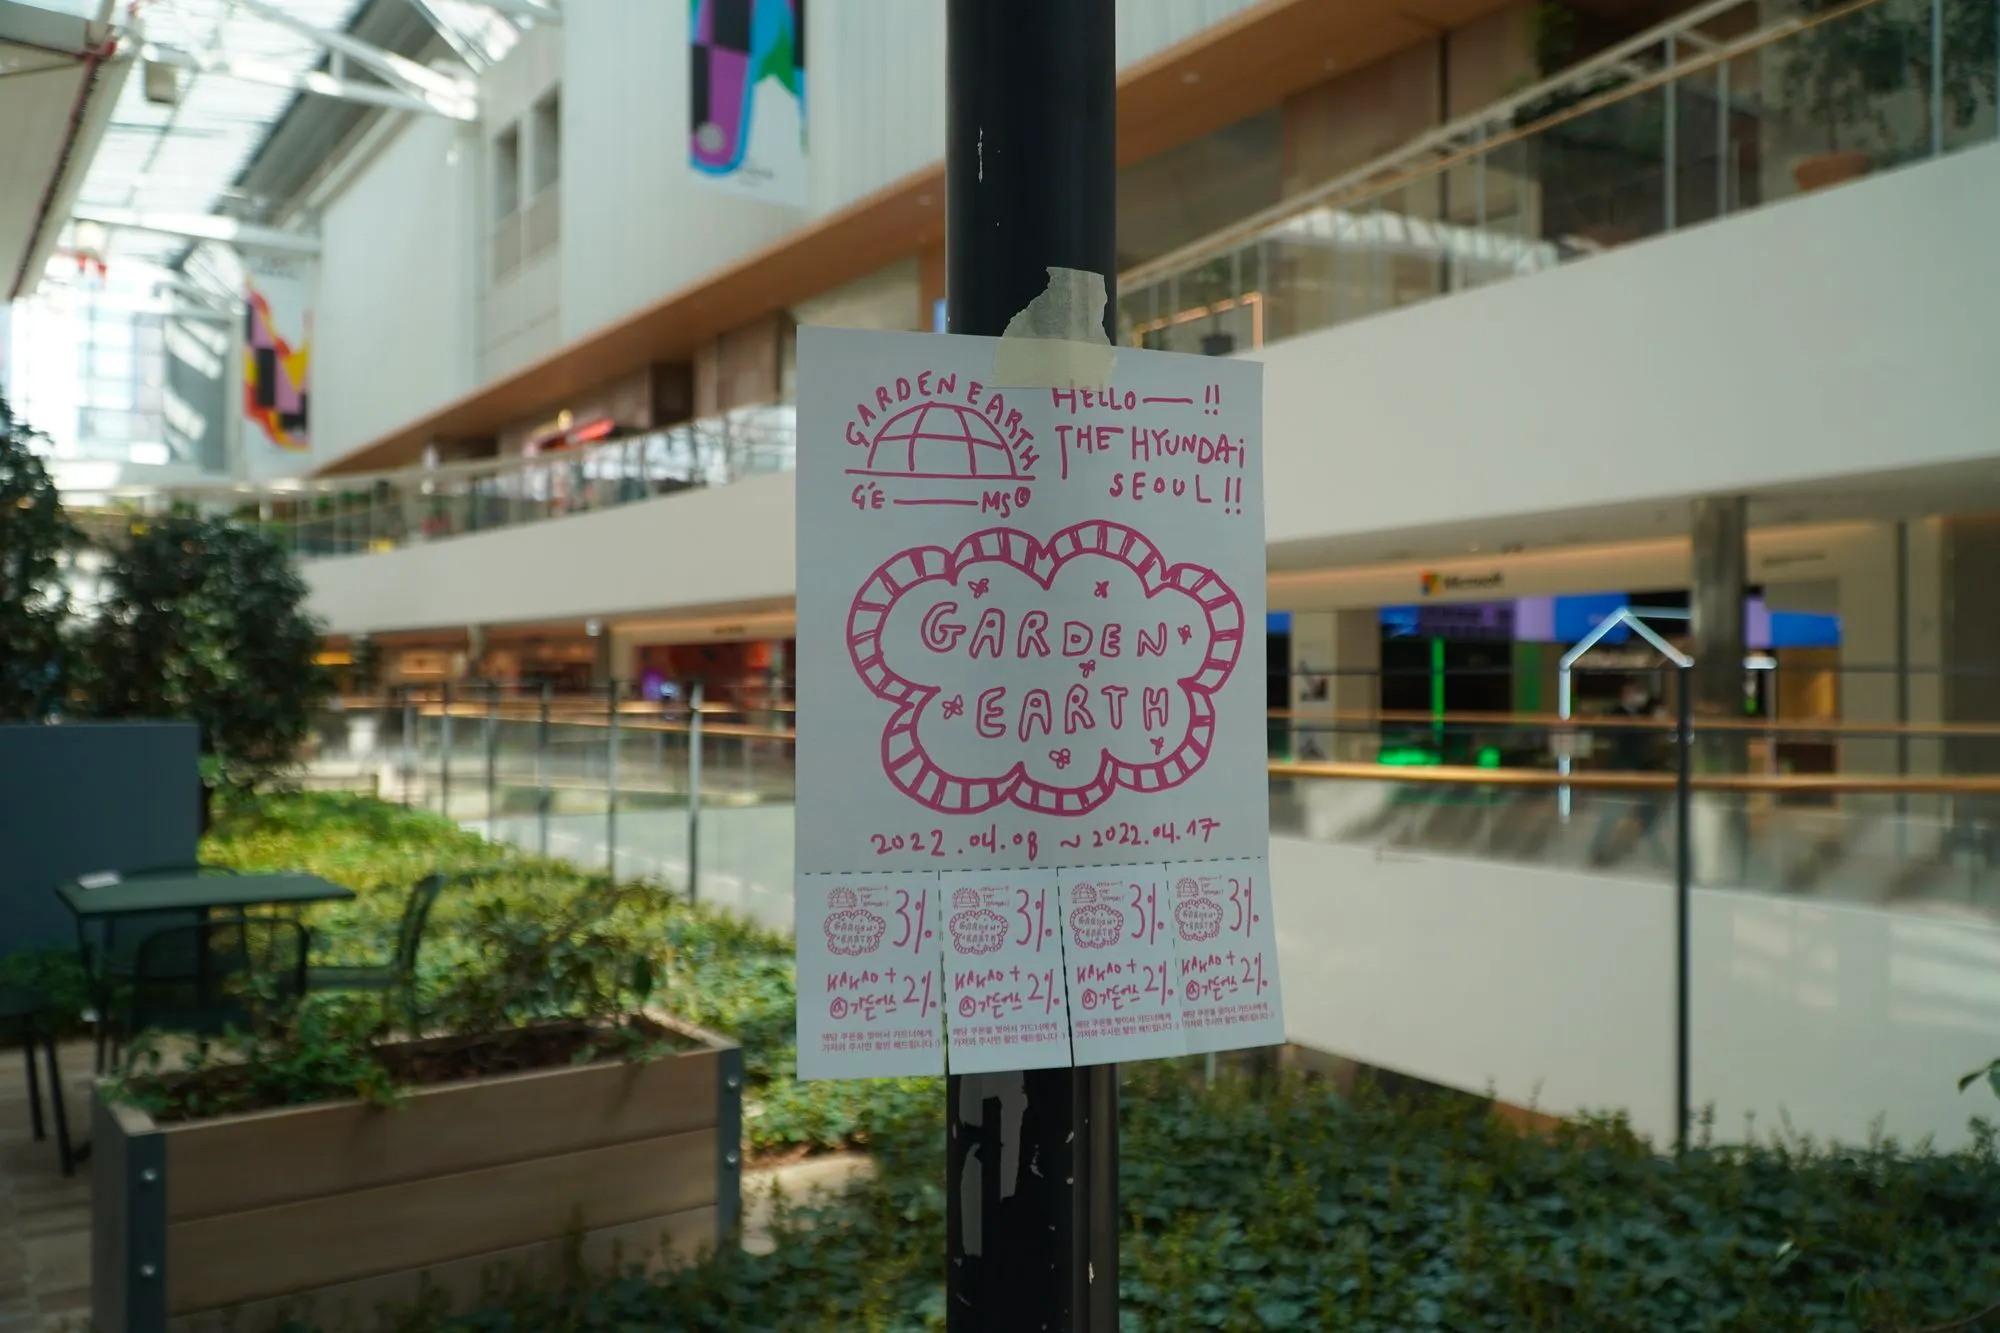 GARDEN EARTH
GE — MS®
HELLO — !!
THE HYUNDAi
SEOUL!!
GARDEN
EARTH
2022.04.08 ~ 2022.04.17
3%
KAKAO +
@가든어스 2%
해당 쿠폰을 찢어서 가드너에게
가져와 주시면 할인 해드립니다 :)
3%
KAKAO +
@가든어스 2%
해당 쿠폰을 찢어서 가드너에게
가져와 주시면 할인 해드립니다 :)
3%
KAKAO +
@가든어스 2%
해당 쿠폰을 찢어서 가드너에게
가져와 주시면 할인 해드립니다 :)
3%
KAKAO +
@가든어스 2%
해당 쿠폰을 찢어서 가드너에게
가져와 주시면 할인 해드립니다 :)
Microsoft